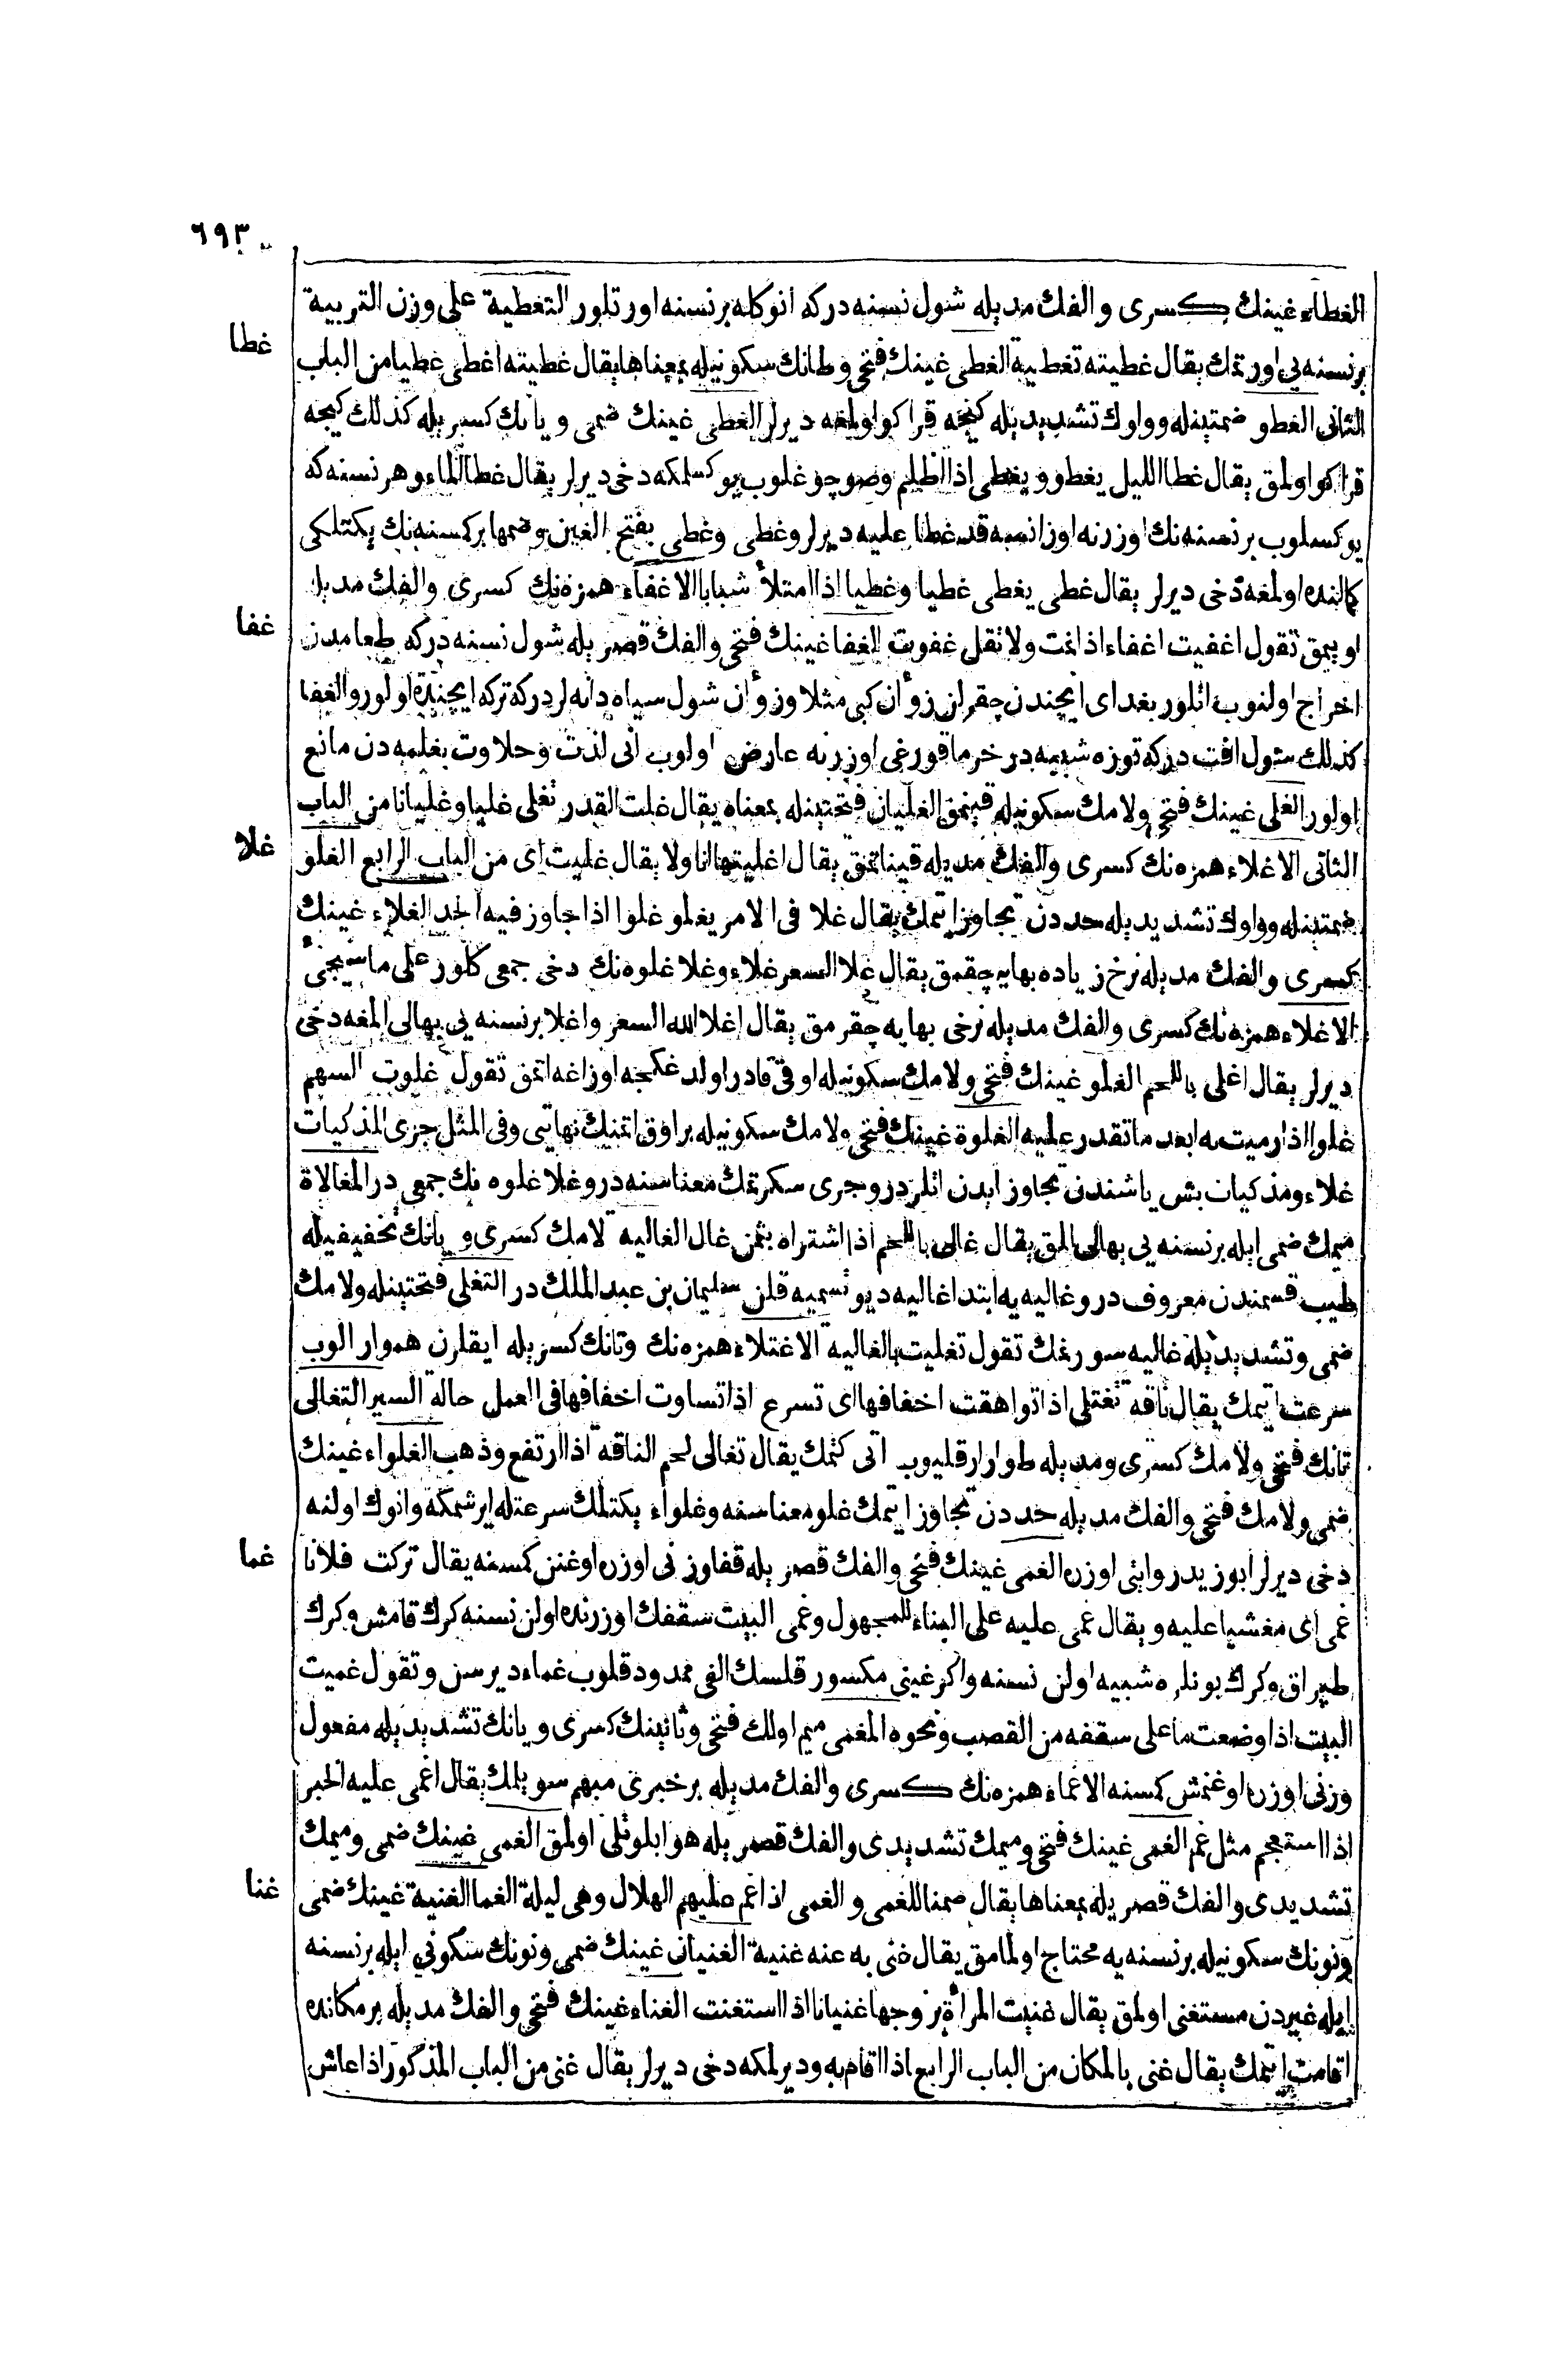 ٦٩٣
الغطاء غينك كسرى والفك مديله شول نسنه دركه انوكله برنسنه اورتلور التغطية على وزن التربية
غطا
برنسنه يى اورتمك يقال غطيته تغطية الغطى غينك فتحى وطانك سكونيله بمعناها يقال غطيته اغطى غطيا من الباب
الثانى الغطو ضمتينله وواوك تشديديله كيجه قراكو اولمغه ديرلر الغطى غينك ضمى ويانك كسريله كذلك كيجه
قراكو اولمق يقال غطا الليل يغطو ويغطى اذا اظلم وصو چوغلوب يوكسلمكه دخى ديرلر يقال غطا الماء وهر نسنه كه
يوكسلوب برنسنه نك اوزرنه اوزانسه قد غطا عليه ديرلر وغطى وغطى بفتح الغين وضمها بركسنه نك يكتلكى
كمالنده اولمغه دخى ديرلر يقال غطى يغطى غطيا وغطيا اذا امتلأ شبابا الاغفاء همزه نك كسرى والفك مديله
غفا
اويمق تقول اغفيت اغفاء اذا نمت ولا تقل غفوت الغفا غينك فتحى والفك قصريله شول نسنه دركه طعامدن
اخراج اولنوب اتلور بغداى ايچندن چقرلن زؤان كبى مثلا وزؤان شول سياه دانه لردركه تركه ايچنده اولور والغفا
كذلك شول افت دركه توزه شبيه در خرما قورغى اوزرنه عارض اولوب انى لذت وحلاوت بغلمه دن مانع
اولور الغلى غينك فتحى ولامك سكونيله قينمق الغليان فتحتينله بمعناه يقال غلت القدر تغلى غليا وغليانا من الباب
غلا
الثانى الاغلاء همزه نك كسرى والفك مديله قيناتمق يقال اغليتها انا ولا يقال غليت اى من الباب الرابع الغلو
ضمتينله وواوك تشديديله حددن تجاوز اتمك يقال غلا فى الامر يغلو غلوا اذا جاوز فيه الحد الغلاء غينك
كسرى والفك مديله نرخ زياده بهايه چقمق يقال غلا السعر غلاء وغلا غلوه نك دخى جمعى كلور على ما سيجئ
الاغلاء همزه نك كسرى والفك مديله نرخى بهايه چقرمق يقال اغلا الله السعر واغلا برنسنه يى بهالى المغه دخى
ديرلر يقال اغلى باللحم الغلو غينك فتحى ولامك سكونيله اوقى قادر اولدغكجه اوزاغه اتمق تقول غلوت السهم
غلوا اذا رميت به ابعد ما تقدر عليه الغلوة غينك فتحى ولامك سكونيله براوق اتمنك نهايتى وفى المثل جرى المذكيات
غلاء ومذكيات بش ياشندن تجاوز ايدن اتلردر وجرى سكرتمك معناسنه در وغلا غلوه نك جمعى در المغالاة
ميمك ضمى ايله برنسنه يى بهالى المق يقال غالى باللحم اذا اشتراه بثمن غال الغاليه لامك كسرى ويانك تخفيفيله
طيب قسمندن معروف در وغاليه يه ابتدا غاليه ديو تسميه قلن سليمان بن عبد الملك در التغلى فتحتينله ولامك
ضمى وتشديديله غاليه سورنمك تقول تغليت بالغاليه الاغتلاء همزه نك وتانك كسريله ايقلرن هموار الوب
سرعت اتمك يقال ناقه تغتلى اذا تواهقت اخفافها اى تسرع اذا تساوت اخفافها فى العمل حالة السير التغالى
تانك فتحى ولامك كسرى ومديله طوارارقليوب اتى كتمك يقال تغالى لحم الناقه اذا ارتفع وذهب الغلواء غينك
ضمى ولامك فتحى والفك مديله حددن تجاوز اتمك غلو معناسنه وغلواء يكتلك سرعتله ايرشمكه وانوك اولنه
دخى ديرلر ابو زيد روايتى اوزره الغمى غينك فتحى والفك قصريله قفاوزنى اوزره اوغنن كمسنه يقال تركت فلانا
غما
غمى اى مغشيا عليه ويقال غمى عليه على البناء للمجهول وغمى البيت سقفك اوزرنده اولن نسنه كرك قامش وكرك
طپراق وكرك بونلره شبيه اولن نسنه واكر غينى مكسور قلسك الفى ممدود قلوب غماء ديرسن وتقول غميت
البيت اذا وضعت ما على سقفه من القصب ونحوه المغمى ميم اولك فتحى وثانينك كسرى ويانك تشديديله مفعول
وزنى اوزره اوغنمش كمسنه الاغماء همزه نك كسرى والفك مديله برخبرى مبهم سويلمك يقال اغمى عليه الخبر
اذا استعجم مثل غم الغمى غينك فتحى وميمك تشديدى والفك قصريله هوا بلوتلى اولمق الغمى غينك ضمى وميمك
تشديدى والفك قصريله بمعناها يقال صمنا للغمى والغمى اذا غم عليهم الهلال وهى ليلة الغما الغنية غينك ضمى
غنا
ونونك سكونيله برنسنه يه محتاج اولمامق يقال غنى به عنه غنية الغنيان غينك ضمى ونونك سكونى ايله برنسنه
ايله غيردن مستغنى اولمق يقال غنيت المرأة بزوجها غنيانا اذا استغنت الغناء غينك فتحى والفك مديله برمكانده
اقامت اتمك يقال غنى بالمكان من الباب الرابع اذا اقام به وديرلمكه دخى ديرلر يقال غنى من الباب المذكور اذا عاش